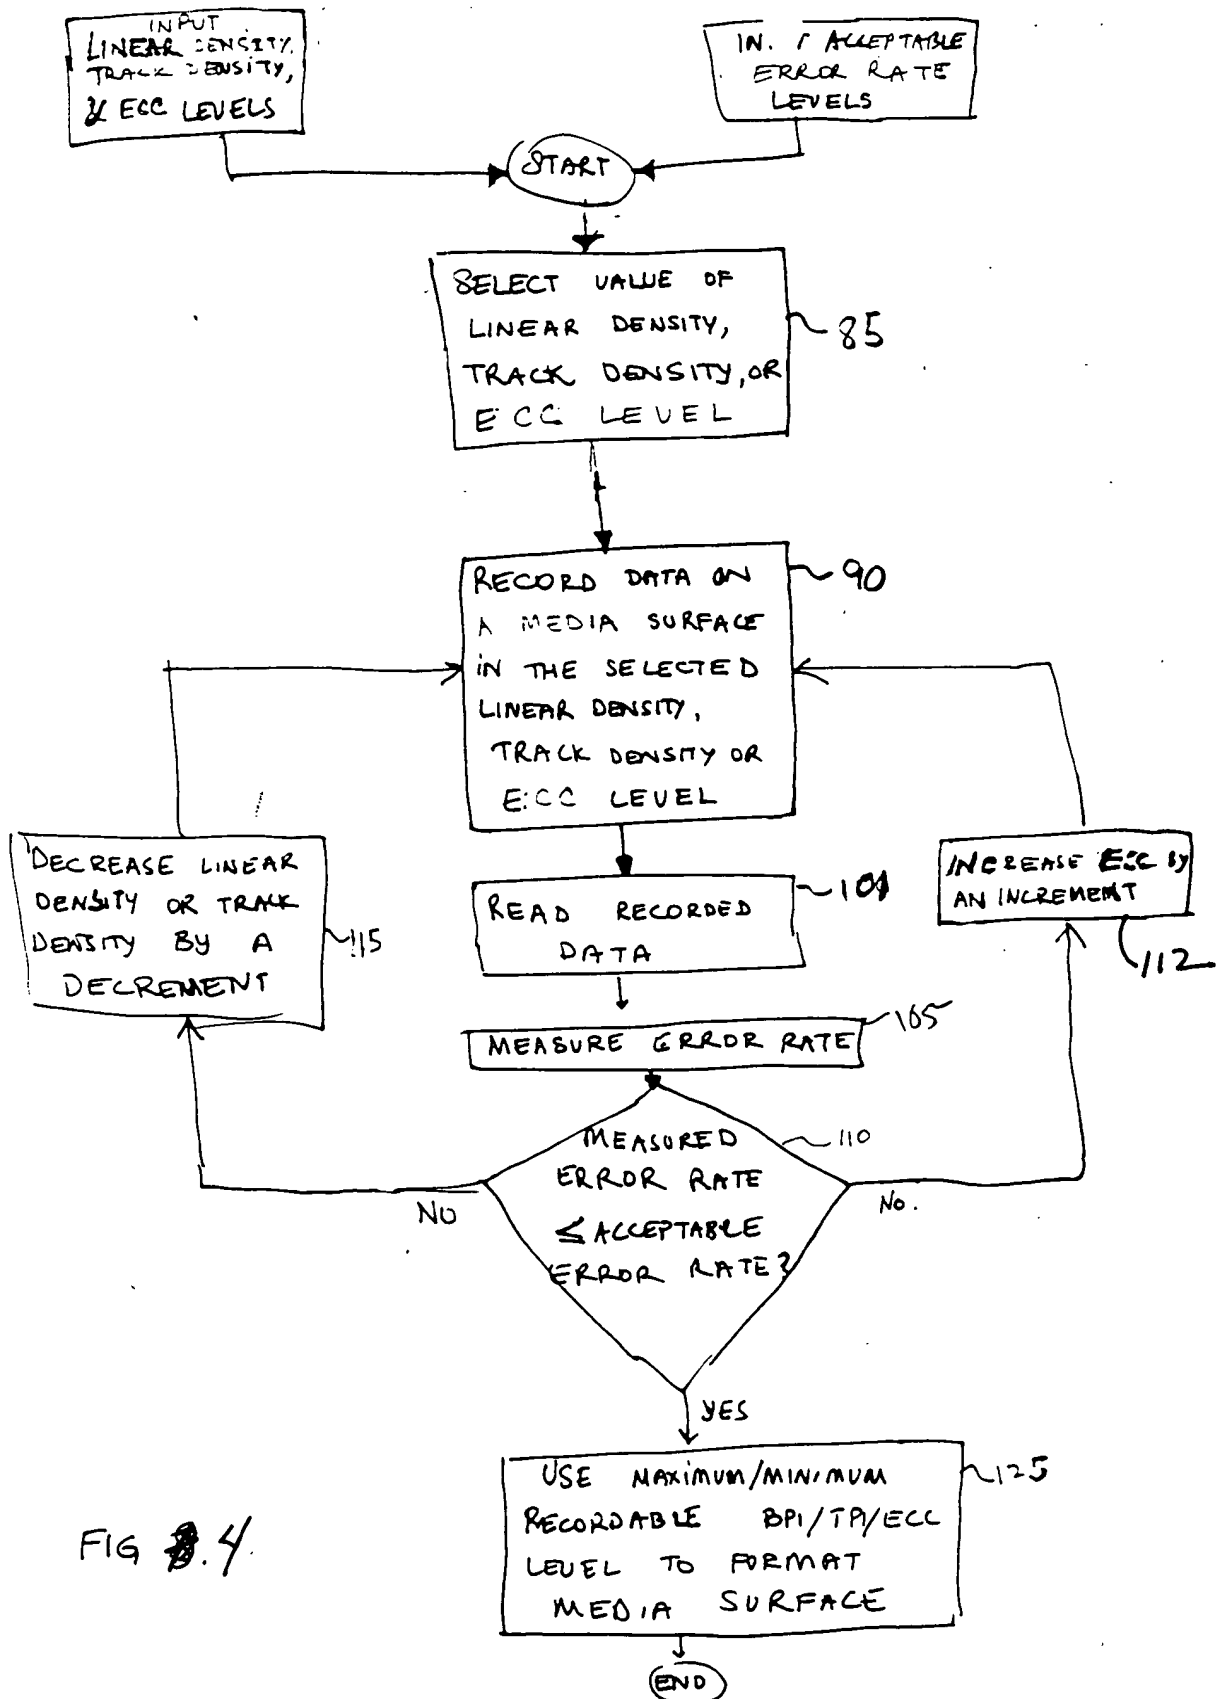 INPUT
LINEAR DENSITY,
TRACK DENSITY,
& ECC LEVELS
ACCEPTABLE
ERROR RATE
LEVELS
START
SELECT VALUE OF
LINEAR DENSITY,
TRACK DENSITY, OR
ECC LEVEL
85
RECORD DATA ON
A MEDIA SURFACE
IN THE SELECTED
LINEAR DENSITY,
TRACK DENSITY OR
ECC LEVEL
90
DECREASE LINEAR
DENSITY OR TRACK
DENSITY BY A
DECREMENT
115
READ RECORDED
DATA
101
INCREASE ECC BY
AN INCREMENT
112
MEASURE ERROR RATE
105
MEASURED
ERROR RATE
≤ ACCEPTABLE
ERROR RATE?
110
NO
No.
YES
USE MAXIMUM/MINIMUM
RECORDABLE BPI/TPI/ECC
LEVEL TO FORMAT
MEDIA SURFACE
125
END
FIG .4